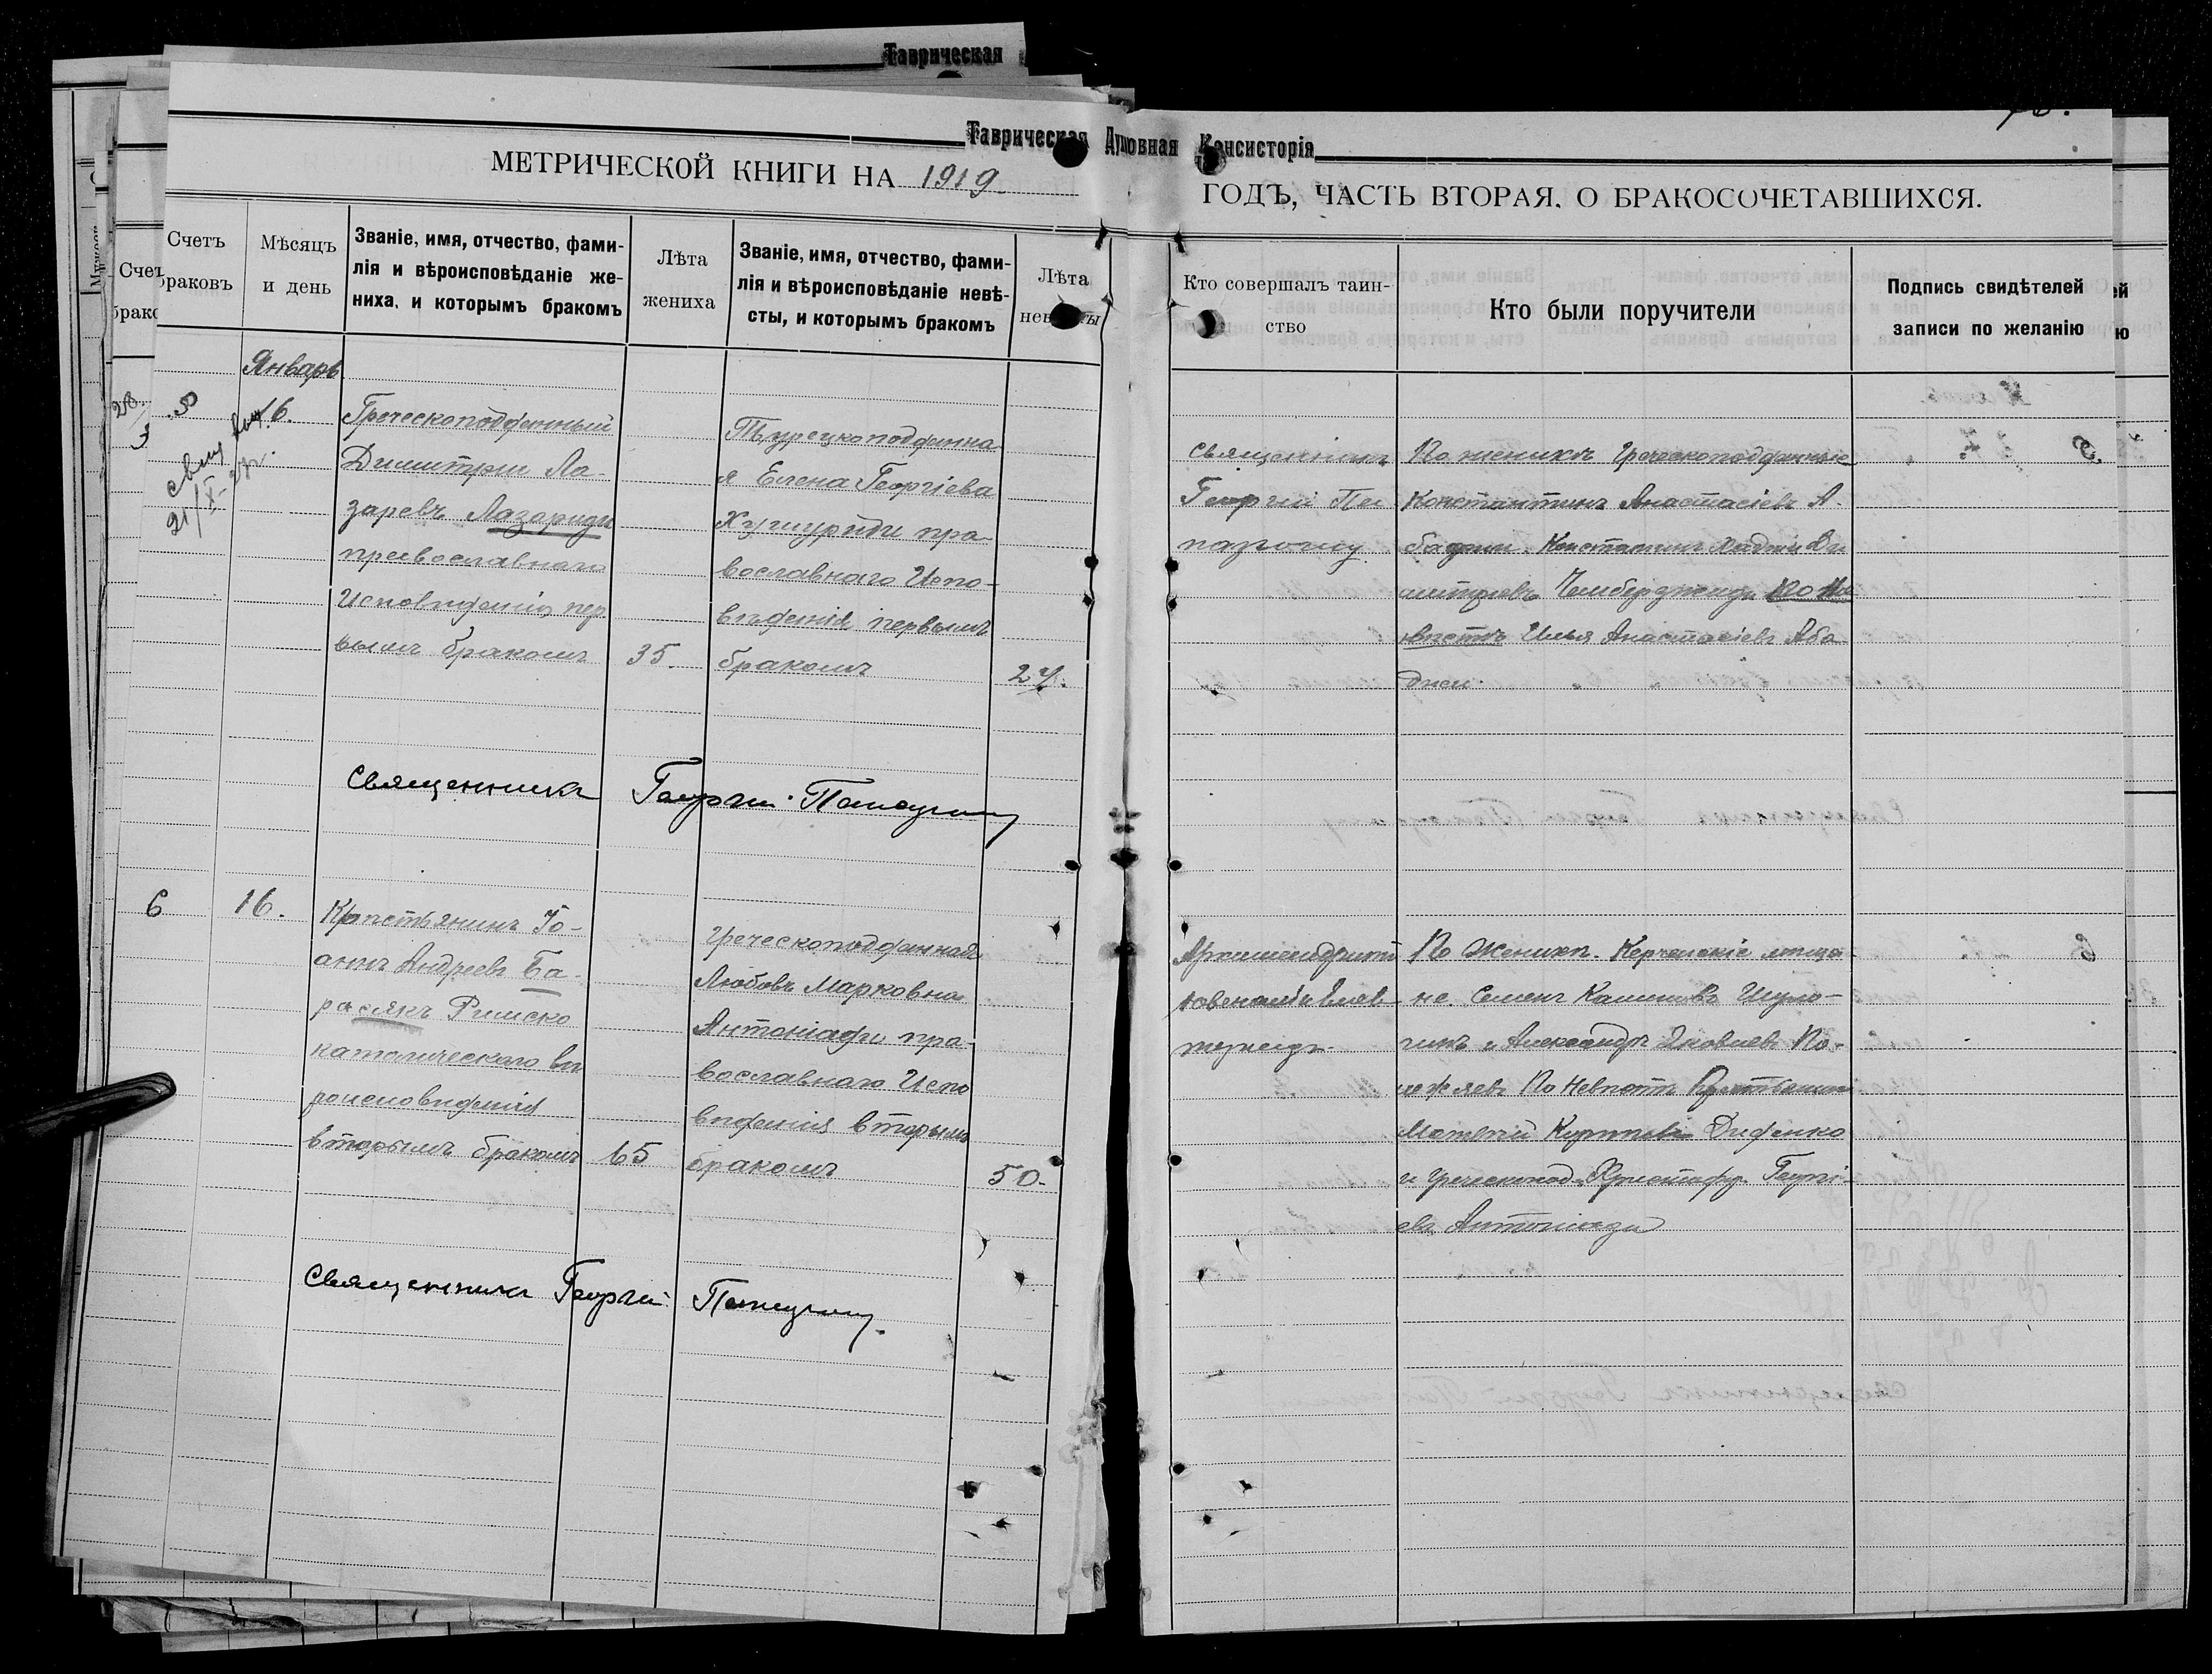 Таврическая
Таврическая Духовная Консисторія
МЕТРИЧЕСКОЙ КНИГИ НА 1919
ГОДЪ, ЧАСТЬ ВТОРАЯ, О БРАКОСОЧЕТАВШИХСЯ.
Счетъ
браковъ
Мѣсяцъ
и день
Званіе, имя, отчество, фами-
лія и вѣроисповѣданіе же-
ниха, и которымъ бракомъ
Лѣта
жениха
Званіе, имя, отчество, фами-
лія и вѣроисповѣданіе невѣ-
сты, и которымъ бракомъ
Лѣта
невѣсты
Кто совершалъ таин-
ство
Кто были поручители
Подпись свидѣтелей
записи по желанію
Январь
16.
Греческоподданный
Димитрій Ла-
заревъ Лазариди
православнаго
Исповѣданія, пер
вымъ бракомъ
35.
Турецкоподданна
я Елена Георгіева
православнаго Испо-
вѣданія первымъ
бракомъ
27.
Священникъ
Георгій
По женихѣ Греческоподданные
Константинъ Анастасіевъ А-
Константинъ
По не
вѣстѣ Илья Анастасіевъ Аба
Священникъ Георгій
6
16.
Крестьянинъ Іо-
аннъ Андреевъ Ба-
расякъ Римско
католическаго вѣ
роисповѣданія
вторымъ бракомъ
65
Греческоподданная
Любовь Марковна
Антоніади пра-
вославнаго Испо
вѣданія вторымъ
бракомъ
50.
Архимандритъ
Ювеналій
По Женихѣ. Керченскіе мѣща-
не. Семенъ
и Александръ Яковлевъ По-
По Невѣстѣ Крестьянинъ
Матвѣй Диденко
и Христофоръ Георгі-
евъ Антоніади
Священникъ Георгій